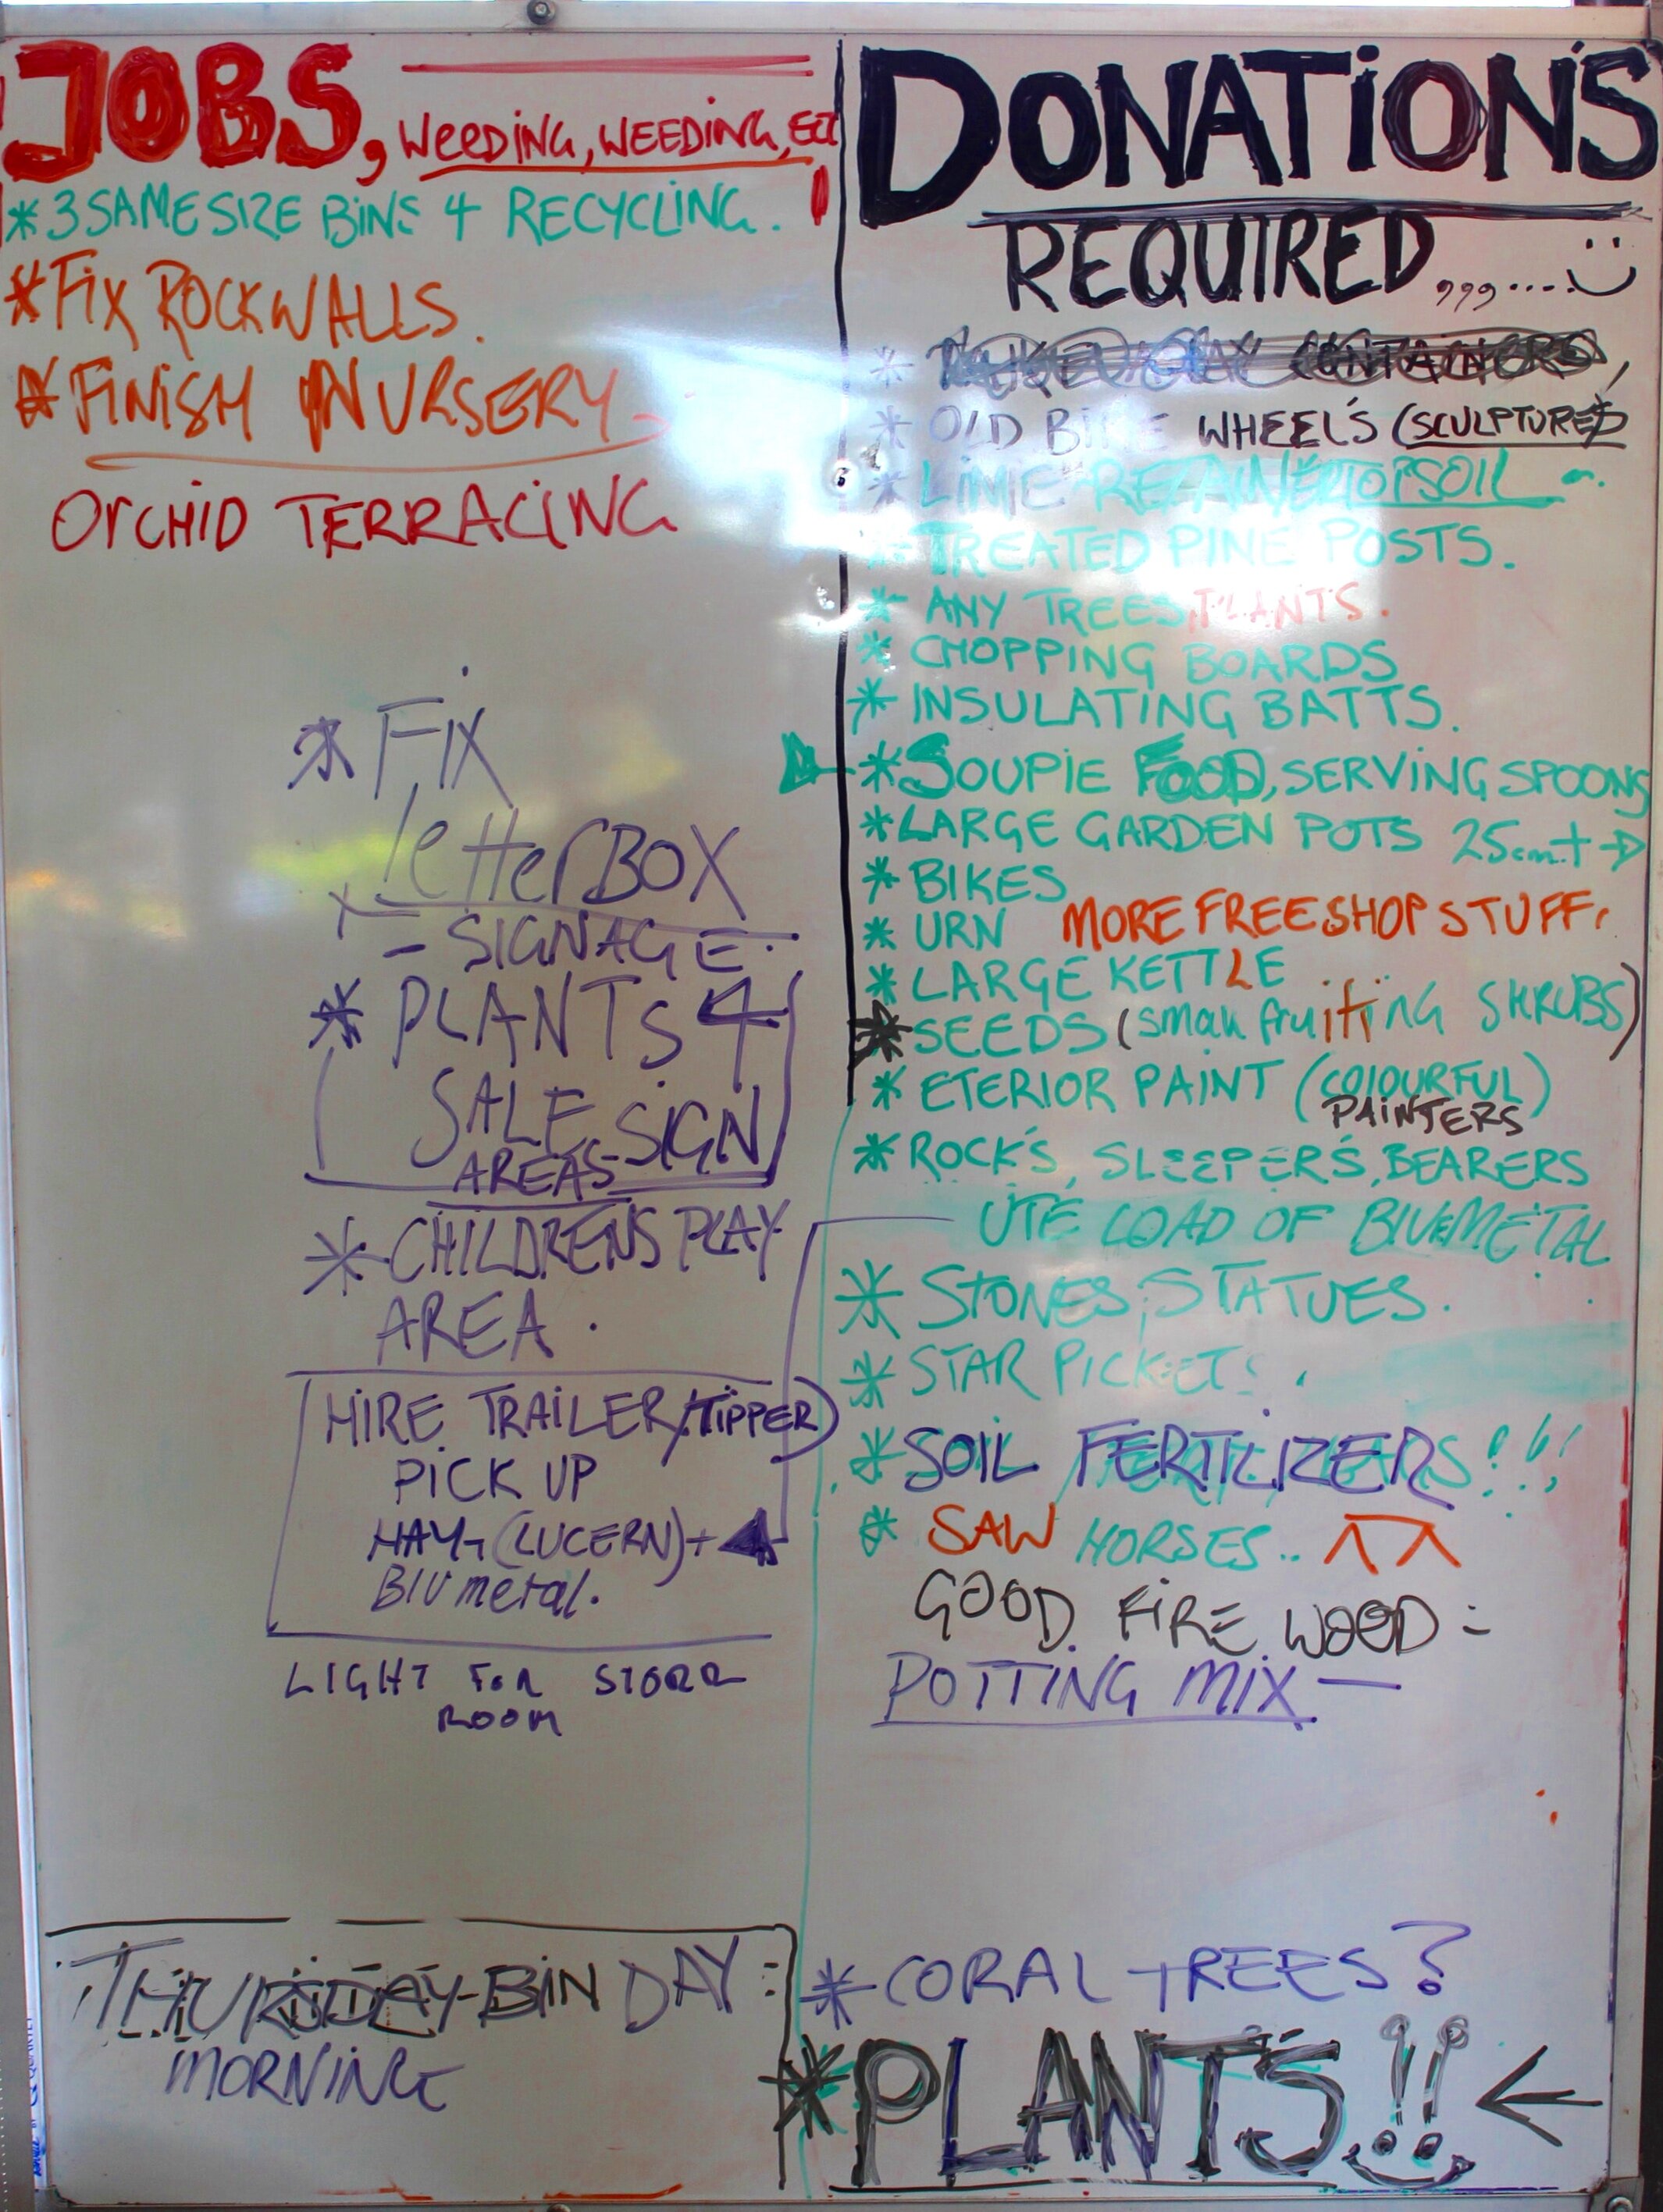 JOBS, WEEDING, WEEDING, ECT
* 3 SAME SIZE BINS 4 RECYCLING.
* FIX ROCKWALLS.
* FINISH NURSERY
ORCHID TERRACING
* FIX
letterBOX
- SIGNAGE.
* PLANTS 4
SALE SIGN
AREAS
* CHILDRENS PLAY
AREA.
HIRE TRAILER/(TIPPER)
PICK UP
HAY-(LUCERN)+
BLU metal.
LIGHT FOR STORE
ROOM
THURSDAY-BIN DAY:
MORNING
DONATIONS
REQUIRED,,,....
CONTAINORS,
* OLD BIKE WHEEL'S (SCULPTURES)
* LIME TOPSOIL
* TREATED PINE POSTS.
* ANY TREES, PLANTS.
* CHOPPING BOARDS
* INSULATING BATTS.
* SOUPIE FOOD, SERVING SPOONS
* LARGE GARDEN POTS 25cm+ →
* BIKES
* URN MORE FREESHOP STUFF,
* LARGE KETTLE
* SEEDS (small fruiting SHRUBS)
* ETERIOR PAINT (COLOURFUL)
PAINTERS
* ROCK'S, SLEEPER'S, BEARERS
UTE LOAD OF BLUEMETAL
* STONES, STATUES.
* STAR PICKETS.
* SOIL FERTILIZERS!!!
* SAW HORSES..
GOOD FIRE WOOD =
POTTING MIX —
* CORAL TREES?
* PLANTS!! ←